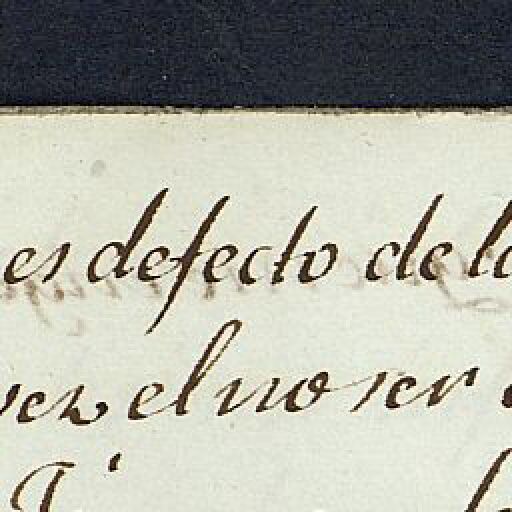 es defecto de la
vez el no ser